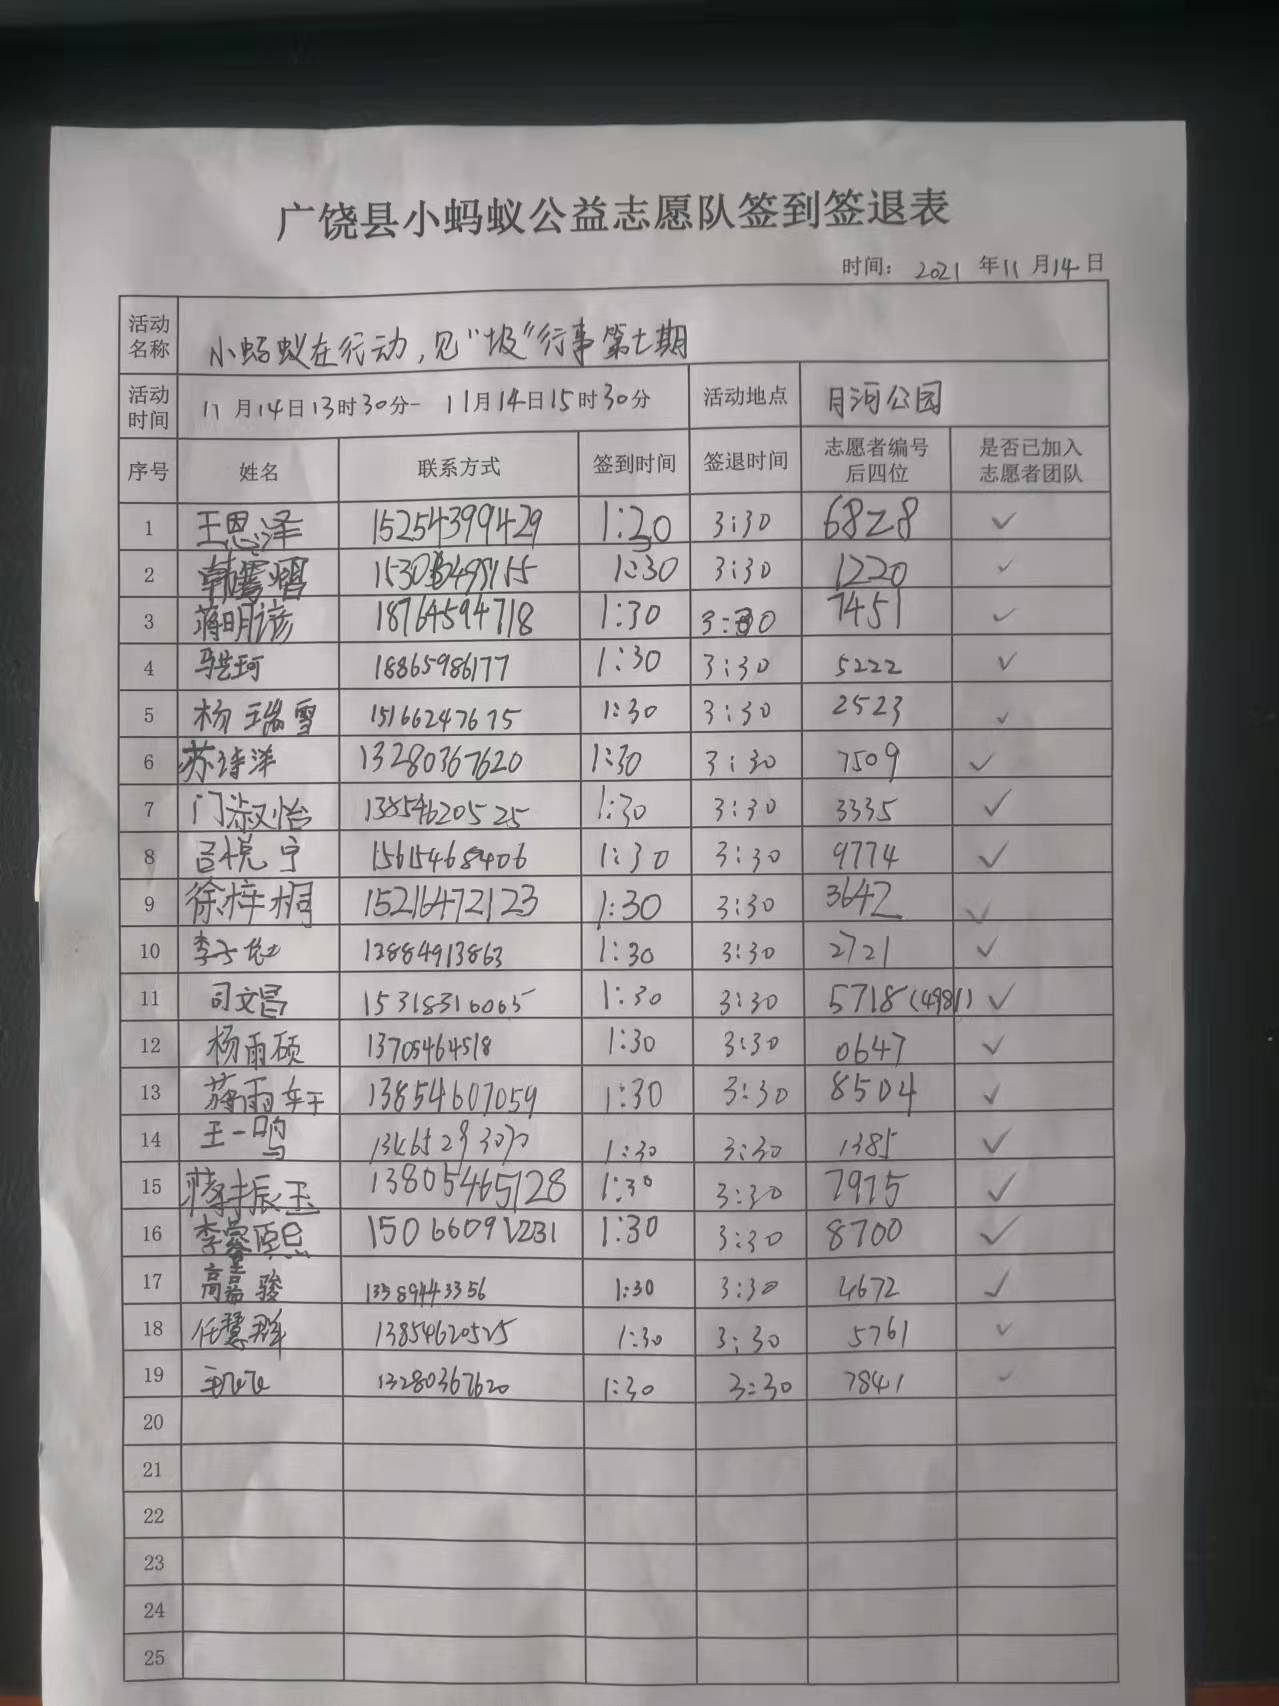 广饶县小蚂蚁公益志愿队签到签退表
时间： 2021 年11 月14 日
活动名称 小蚂蚁在行动，见“圾”行事第七期
活动时间 11月14日13时30分- 11月14日15时30分 活动地点 月河公园
序号 姓名 联系方式 签到时间 签退时间 志愿者编号后四位 是否已加入志愿者团队
1 王恩泽 15254399429 1:30 3:30 6828 ✓
2 1:30 3:30 1220 ✓
3 蒋明谚 18764594718 1:30 3:30 7451 ✓
4 马艺珂 18865986177 1:30 3:30 5222 ✓
5 杨瑞雪 15166247675 1:30 3:30 2523 ✓
6 苏诗洋 13280367620 1:30 3:30 7509 ✓
7 门淑怡 13854620525 1:30 3:30 3335 ✓
8 吕悦宁 15615468406 1:30 3:30 9774 ✓
9 徐梓桐 15216472123 1:30 3:30 3642 ✓
10 13884913863 1:30 3:30 2721 ✓
11 司文昌 15318316065 1:30 3:30 5718(4981) ✓
12 杨雨硕 13705464518 1:30 3:30 0647 ✓
13 蒋雨轩 13854607059 1:30 3:30 8504 ✓
14 王一鸣 1:30 3:30 1385 ✓
15 蒋振玉 13805465128 1:30 3:30 7975 ✓
16 15066091231 1:30 3:30 8700 ✓
17 高嘉骏 13589443356 1:30 3:30 4672 ✓
18 13854620525 1:30 3:30 5761 ✓
19 13280367620 1:30 3:30 7841 ✓
20
21
22
23
24
25